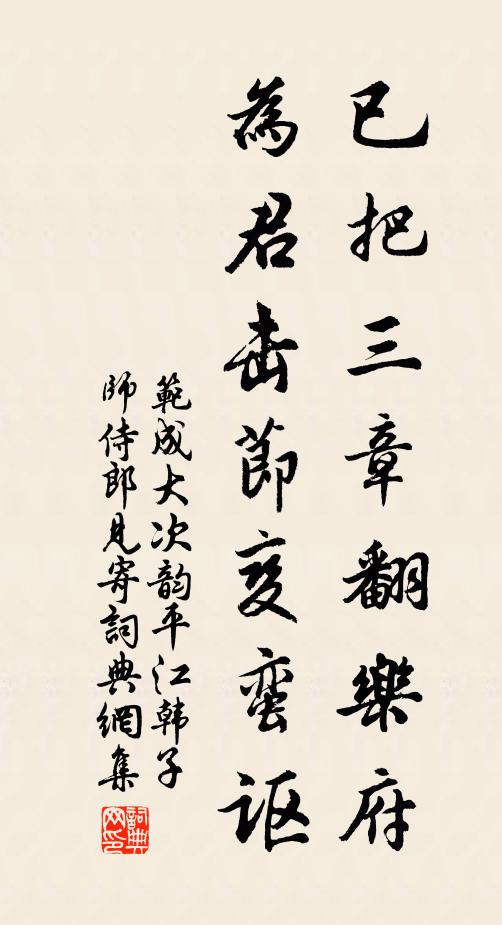 已把三章翻樂府
為君击節变蛮讴
範成大次韵平江韩子
師侍郎見寄詞典網集
詞典网印